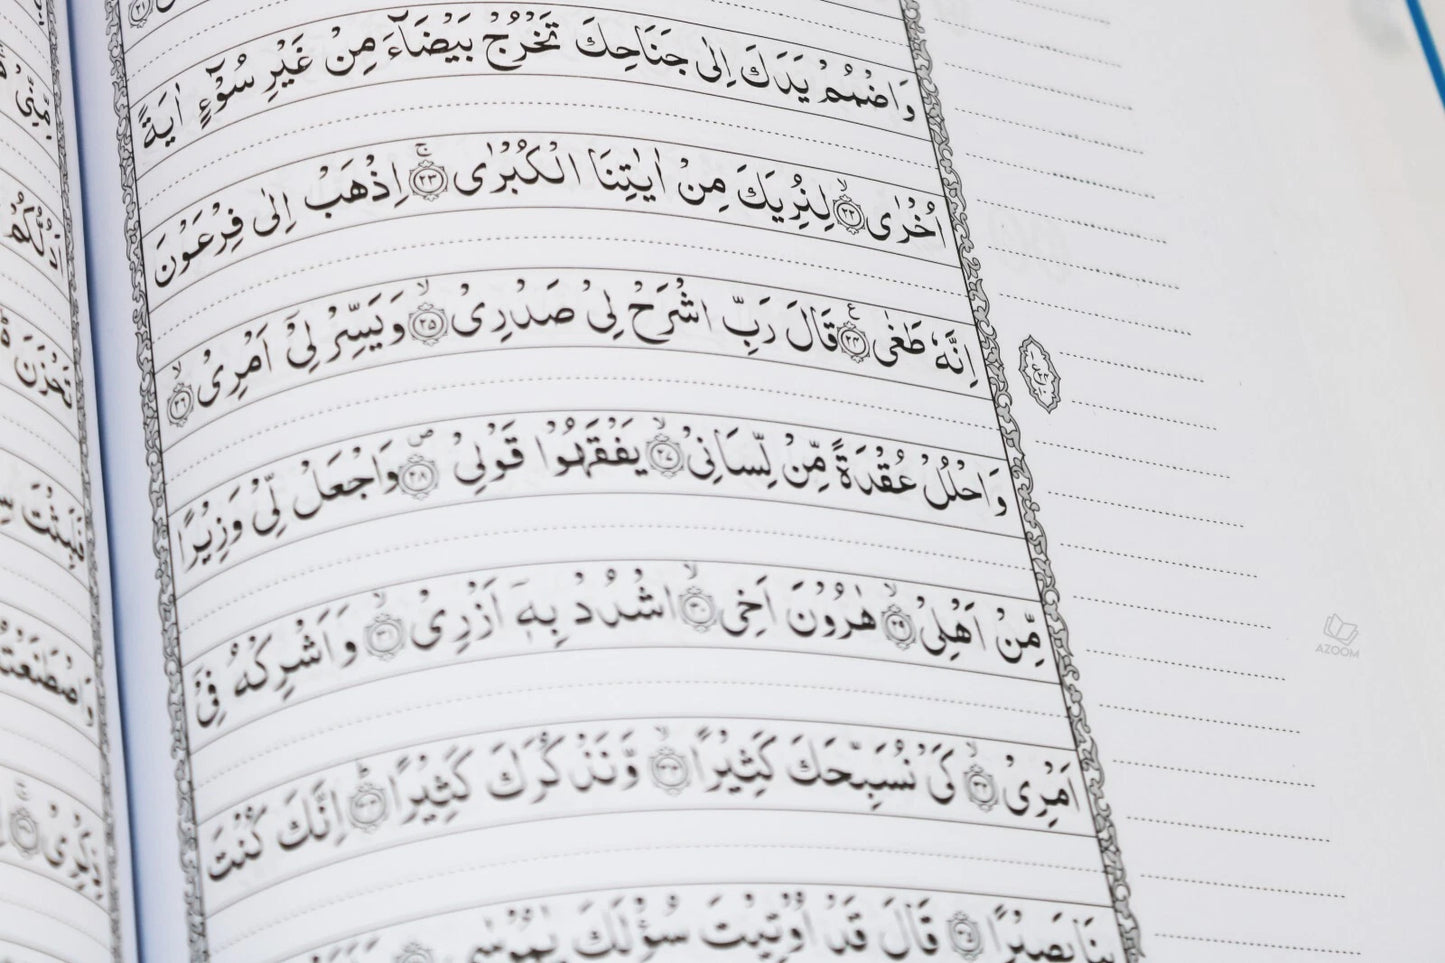 وَاضْمُمْ يَدَكَ اِلٰى جَنَاحِكَ تَخْرُجْ بَيْضَآءَ مِنْ غَيْرِ سُوْٓءٍ اٰيَةً
اُخْرٰى ۙ‏﴿۲۲﴾ لِنُرِيَكَ مِنْ اٰيٰتِنَا الْكُبْرٰى ۚ‏﴿۲۳﴾ اِذْهَبْ اِلٰى فِرْعَوْنَ
اِنَّهٗ طَغٰى ﴿۲۴﴾ قَالَ رَبِّ اشْرَحْ لِىْ صَدْرِىْ ۙ‏﴿۲۵﴾ وَيَسِّرْ لِىْۤ اَمْرِىْ ۙ‏﴿۲۶﴾
وَاحْلُلْ عُقْدَةً مِّنْ لِّسَانِىْ ۙ‏﴿۲۷﴾ يَفْقَهُوْا قَوْلِىْ ۖ‏﴿۲۸﴾ وَاجْعَلْ لِّىْ وَزِيْرًا
مِّنْ اَهْلِىْ ۙ‏﴿۲۹﴾ هٰرُوْنَ اَخِى ۙ‏﴿۳۰﴾ اشْدُدْ بِهٖۤ اَزْرِىْ ۙ‏﴿۳۱﴾ وَاَشْرِكْهُ فِىْۤ
اَمْرِىْ ۙ‏﴿۳۲﴾ كَىْ نُسَبِّحَكَ كَثِيْرًا ۙ‏﴿۳۳﴾ وَّنَذْكُرَكَ كَثِيْرًا ؕ‏﴿۳۴﴾ اِنَّكَ كُنْتَ
بِنَا بَصِيْرًا ﴿۳۵﴾ قَالَ قَدْ اُوْتِيْتَ سُؤْلَكَ يٰمُوْسٰى
AZOOM